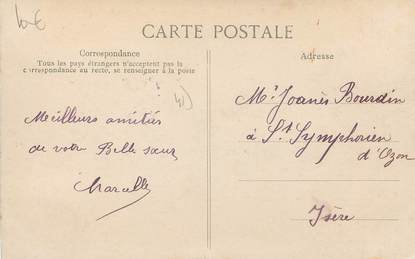 10€
CARTE POSTALE
Correspondance
Tous les pays étrangers n'acceptent pas la
correspondance au recto, se renseigner à la poste
Meilleurs amitiés
de votre Belle sœur
Marcelle
Adresse
Mr Joanès Bourdin
à St Symphorien
d'Ozon
Isère